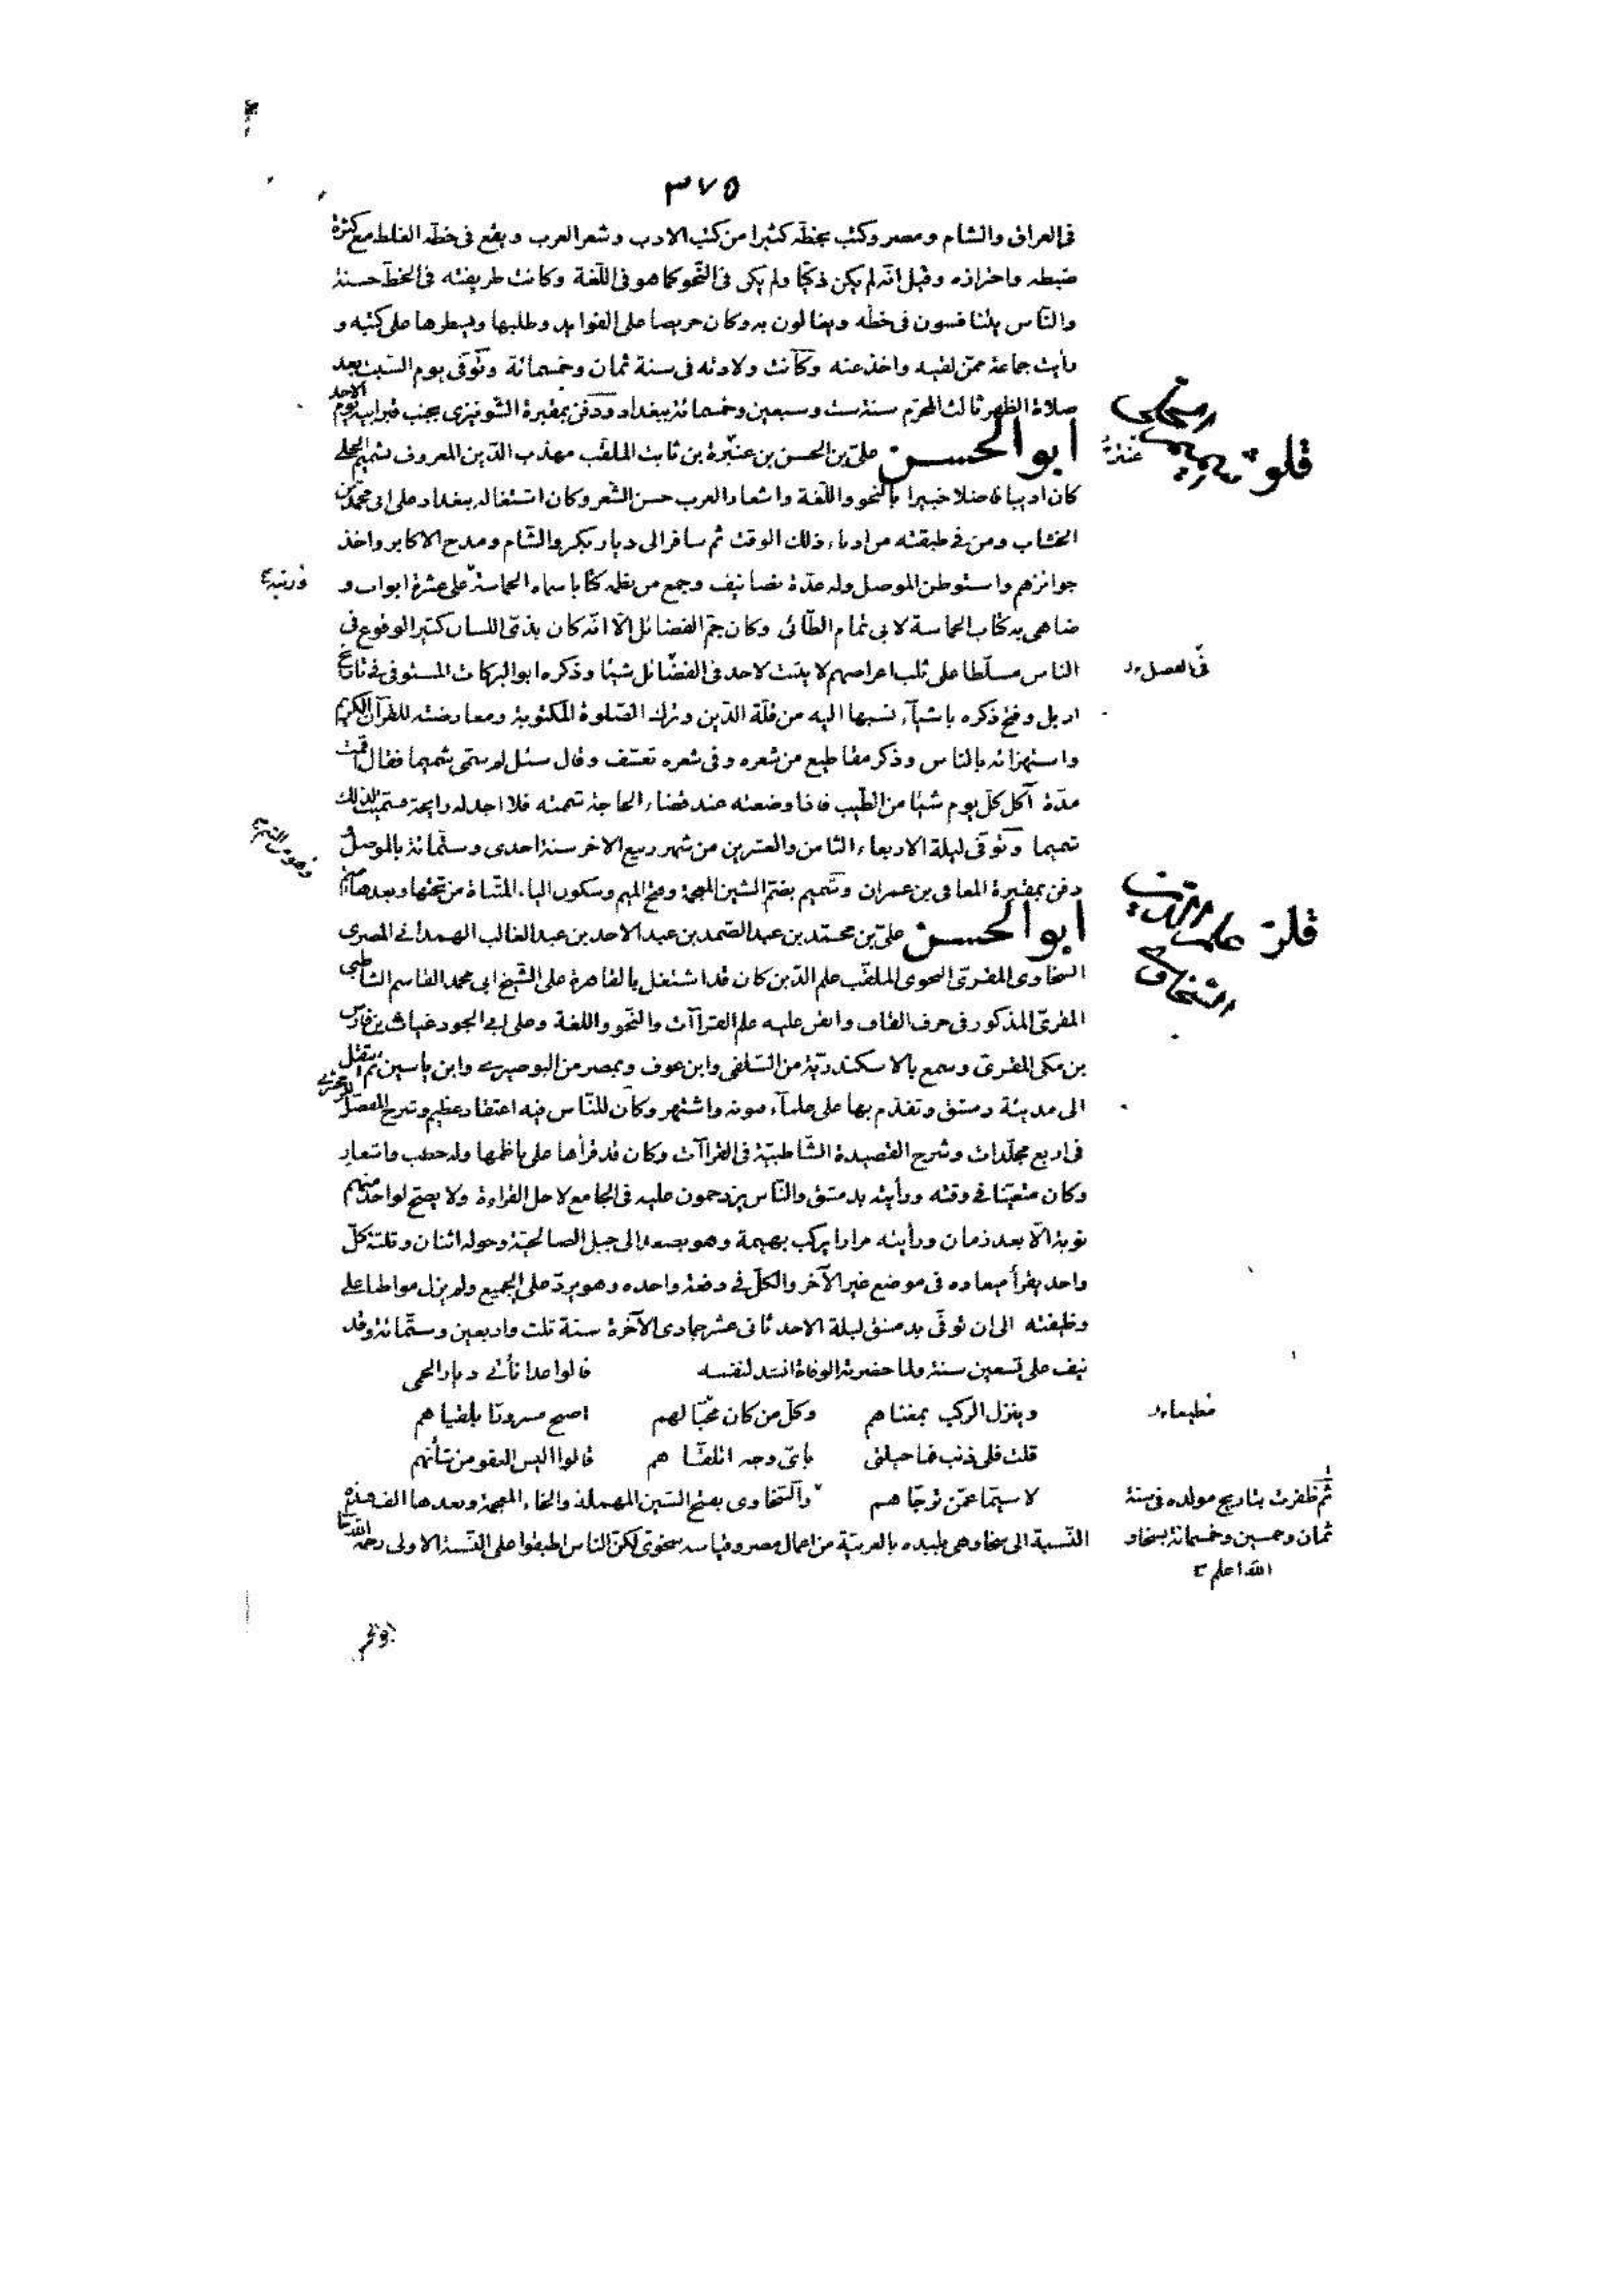 ٣٧٥
فى العراق والشام ومصر وكتب بخطه كثيرا من كتب الادب وشعر العرب ويقع فى خطه الغلط مع كثرة
ضبطه واحترازه وقيل انه لم يكن ذكيّا ولم يكن فى النّحو كما هو فى اللّغة وكانت طريقته فى الخطّ حسنة
والنّاس يتنافسون فى خطّه ويغالون به وكان حريصا على الفوايد وطلبها ويسطرها على كتبه و
رأيت جماعة ممّن لقيه واخذ عنه وكانت ولادته فى سنة ثمان وخمسمائة وتوّفى يوم السّبت بعد
صلاة الظهر ثالث المحرّم سنة ست وسبعين وخمسمائة ببغداد ودفن بمقبرة الشونيزى بجنب قبر ابيه يوم الاحد
ابو الحسن علىّ بن الحسن بن عنتره بن ثابت الملقّب مهذب الدّين المعروف بشميم الحلى
عنتر
كان اديبا فاضلا خبيرا بالنحو واللّغة واشعار العرب حسن الشّعر وكان اشتغاله ببغداد على ابى محمّد بن
الخشاب ومن فى طبقته من ادباء ذلك الوقت ثم سافر الى ديار بكر والشّام ومدح الاكابر واخذ
جوائزهم واستوطن الموصل وله عدّة تصانيف وجمع من نظمه كتابا سماه الحماسة على عشرة ابواب و
ورتبه
ضاهى به كتاب الحماسة لابى تمام الطّائى وكان جمّ الفضائل الّا انّه كان بذىّ اللسان كثير الوقوع فى
الناس مسلّطا على ثلب اعراضهم لا يثبت لاحد فى الفضائل شيئا وذكره ابو البركات المستوفى فى تاريخ
فى الفضل
اربل وفتح ذكره باشيآء نسبها اليه من قلّة الدّين وترك الصّلوة المكتوبة ومعارضته للقرآن الكريم
واستهزائه بالناس وذكر مقاطيع من شعره وفى شعره تعسّف وقال سئل لم سمّى شميما فقال اقمت
مدّة آكل كلّ يوم شيئا من الطّيب فاذا وضعته عند قضاء الحاجة شممته فلا اجد له رايحة فسمّيت لذلك
شميما وتوّفى ليلة الاربعاء الثامن والعشرين من شهر ربيع الاخر سنة احدى وستمائة بالموصل و
دفن بمقبرة المعافى بن عمران وشميم بضمّ الشين المعجمة وفتح الميم وسكون الياء المثنّاة من تحتها وبعدها ميم
ابو الحسن علىّ بن محمّد بن عبد الصّمد بن عبد الاحد بن عبد الغالب الهمدانى المصرى
علم الدين السخاوى
السخاوى المقرىّ النحوى الملقّب علم الدّين كان قد اشتغل بالقاهرة على الشّيخ ابى محمد القاسم الشاطبى
المقرئ المذكور فى حرف القاف واتقن عليه علم القراآت والنّحو واللغة وعلى ابى الجود غياث بن فارس
بن مكى المقرئ وسمع بالاسكندريّة من السّلفى وابن عوف وبمصر من البوصيرى وابن ياسين ثم انتقل
الى مدينة دمشق وتقدّم بها على علمآء فنونه واشتهر وكان للنّاس فيه اعتقاد عظيم وشرح المفصّل للزمخشرى
فى اربع مجلّدات وشرح القصيدة الشّاطبيّة فى القراآت وكان قد قرأها على ناظمها وله خطب واشعار
وكان متعيّنا فى وقته ورأيته بدمشق والنّاس يزدحمون عليه فى الجامع لاجل القراءة ولا يصحّ لواحد منهم
نوبة الّا بعد زمان ورأيته مرارا يركب بهيمة وهو يصعد الى جبل الصالحيّة وحوله اثنان وثلثة كلّ
واحد يقرأ ميعاده فى موضع غير الآخر والكلّ فى دفعة واحده وهو يردّ على الجميع ولم يزل مواظبا على
وظيفته الى ان توفّى بدمشق ليلة الاحد ثانى عشر جمادى الآخرة سنة ثلث واربعين وستّمائة وقد
نيف على تسعين سنة ولما حضرته الوفاة انشد لنفسه قالوا غدا نأتى ديار الحمى
وينزل الركب بمغناهم وكلّ من كان محبّا لهم اصبح مسرورا بلقياهم
قلت فلى ذنب فما حيلتى باىّ وجه اتلقّاهم قالوا اليس العفو من شأنهم
لا سيّما عمّن ترجّاهم والسّخاوى بفتح السّين المهملة والخاء المعجمة وبعدها الف هذه
النّسبة الى سخا وهى بليده بالغربيّة من اعمال مصر وقياسه سخوىّ لكنّ الناس اطبقوا على النّسبة الاولى رحمه الله تعا
ثم ظفرت بتاريخ مولده فى سنة
ثمان وخمسين وخمسمائة بسخا و
الله اعلم